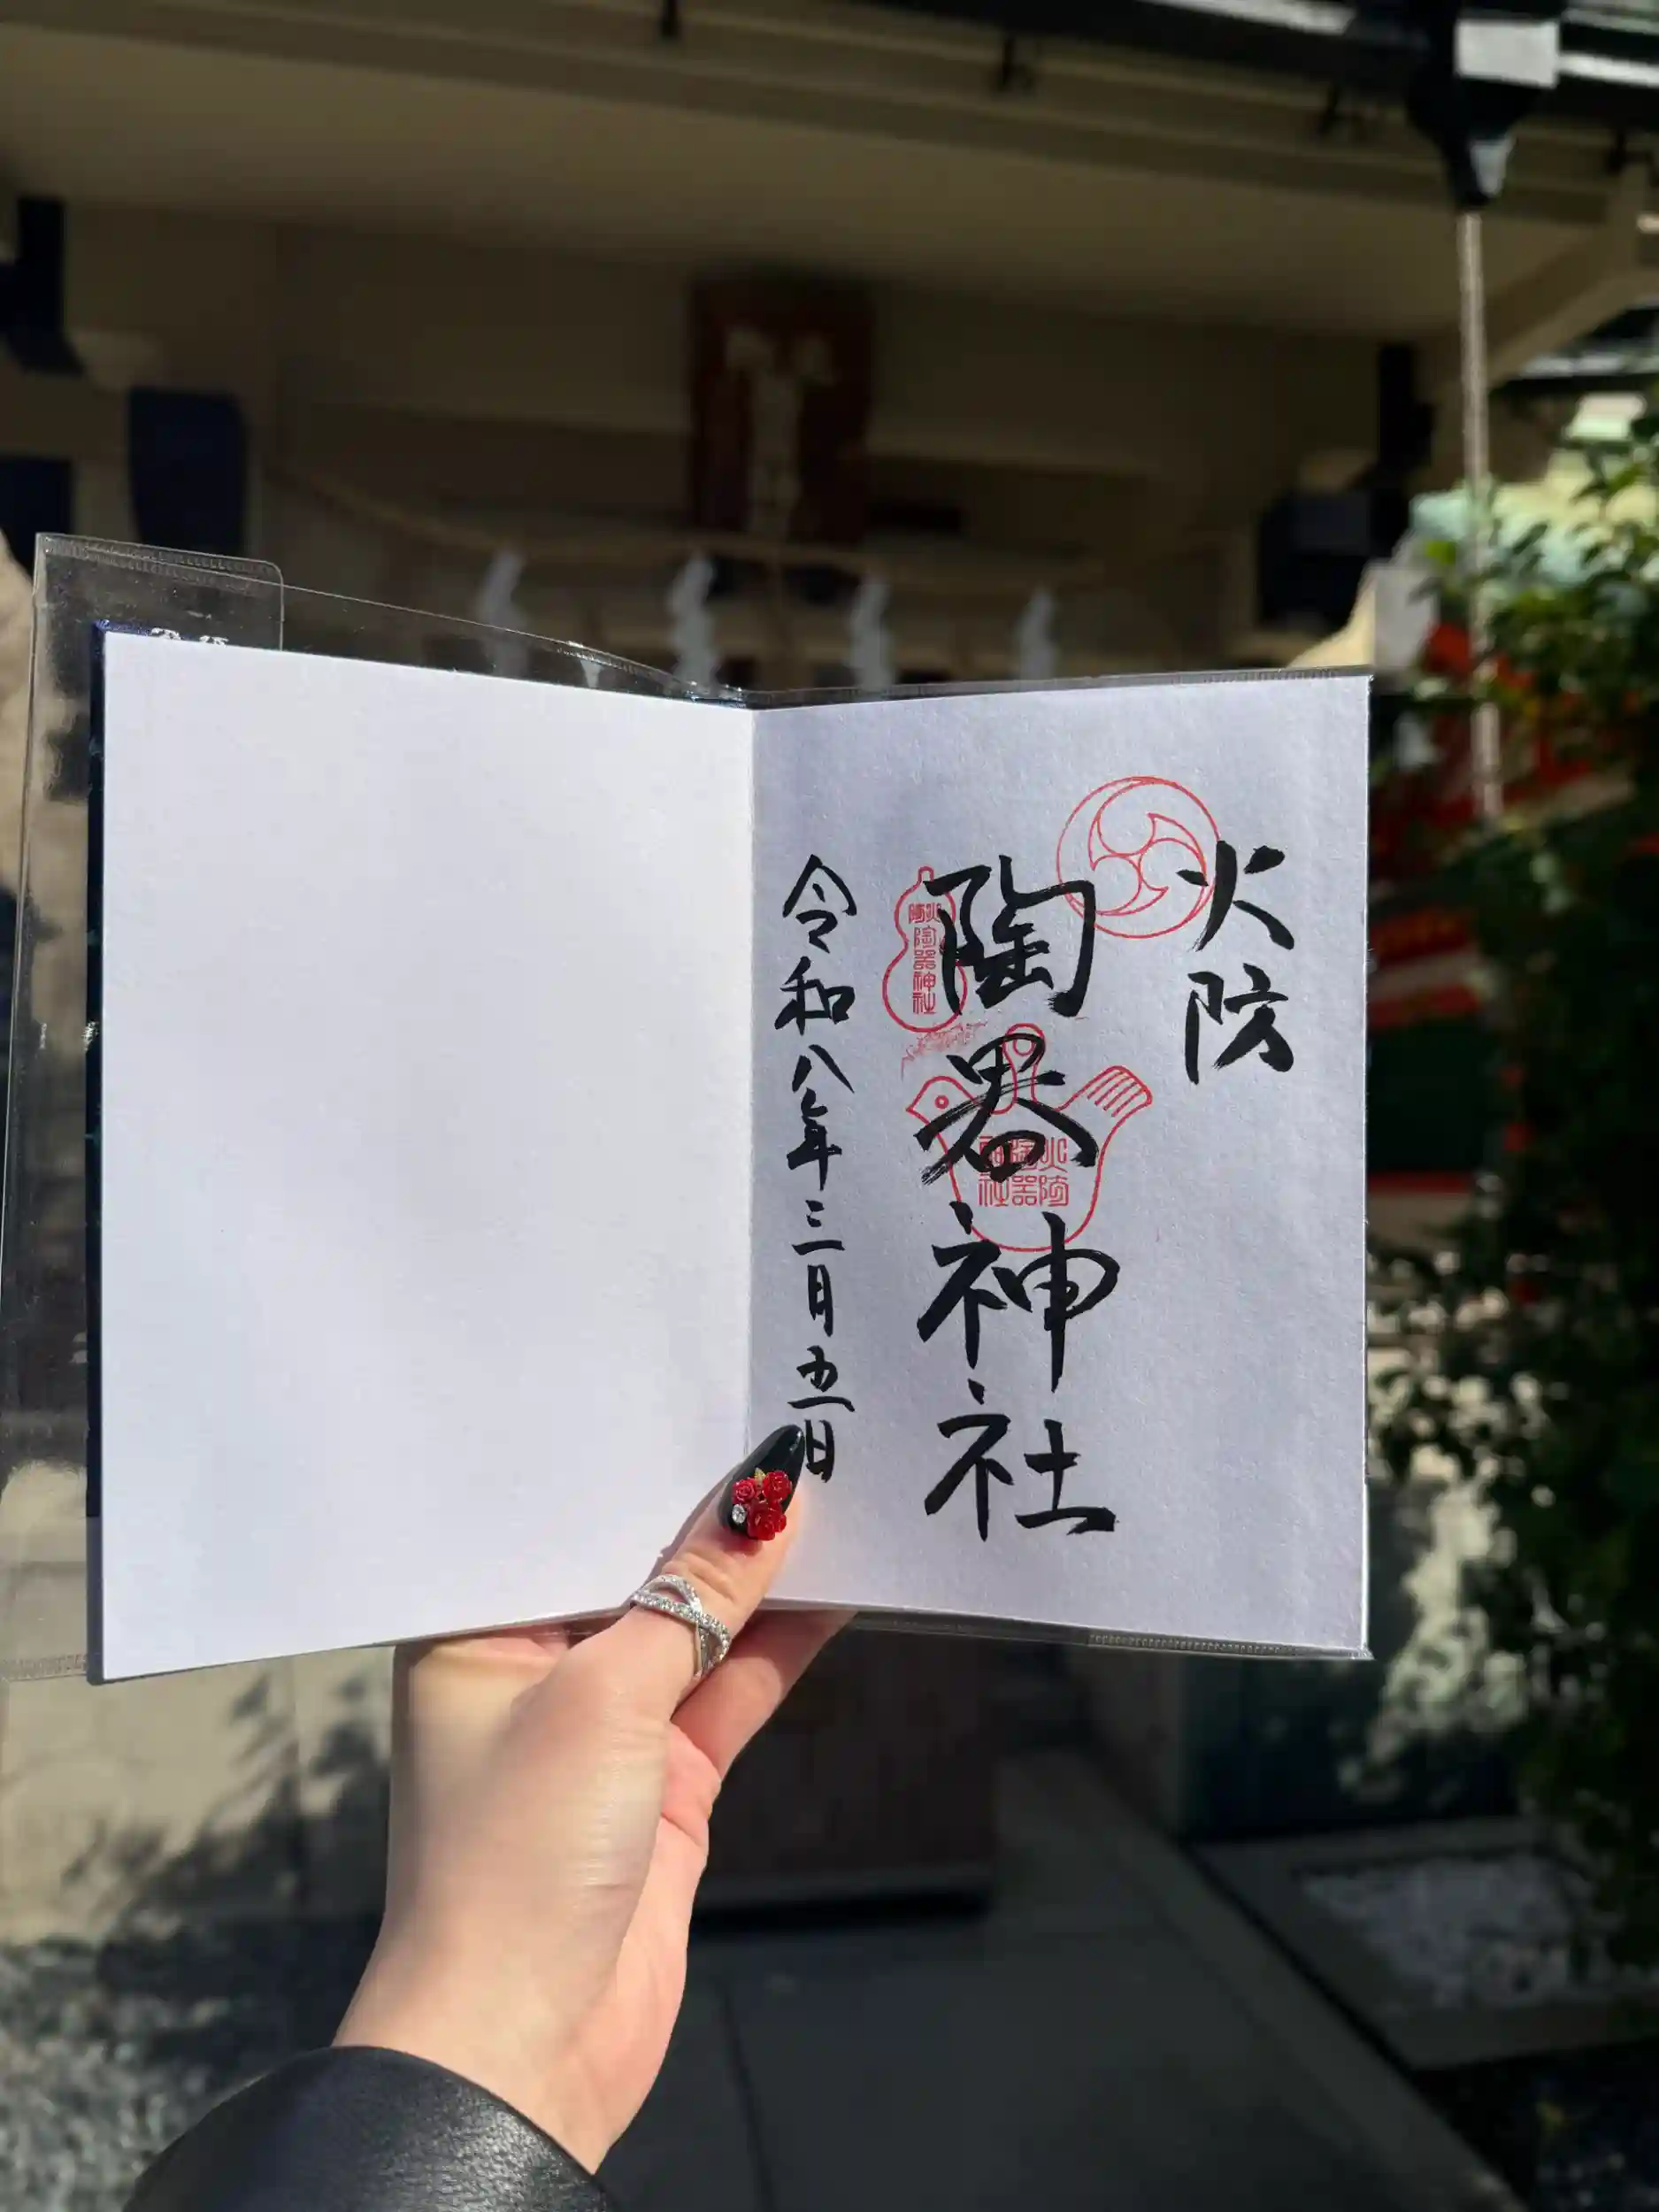 火防
陶器神社
令和八年三月五日
火防
陶器神社
火防
陶器
神社